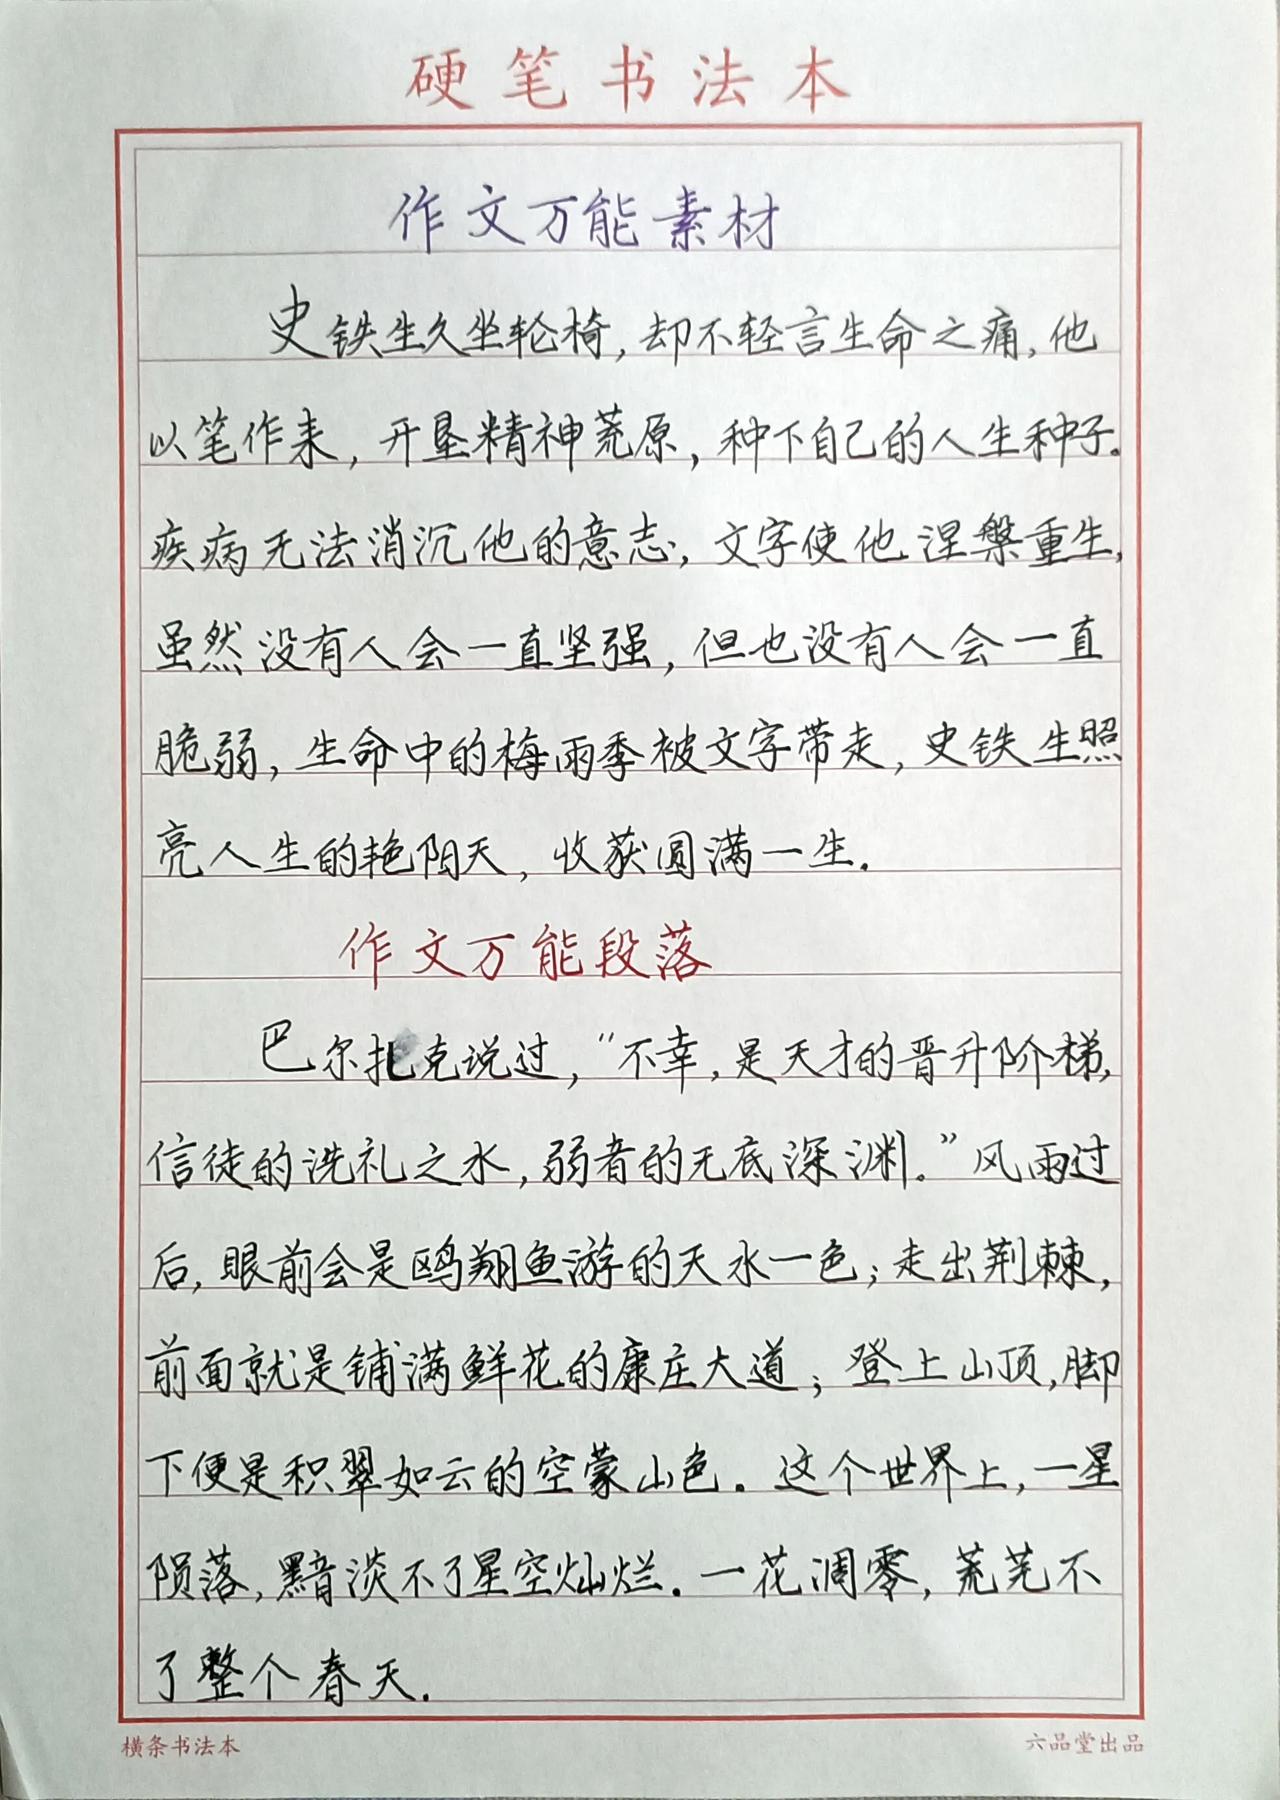 硬笔书法本
作文万能素材
史铁生久坐轮椅,却不轻言生命之痛,他
以笔作耒,开垦精神荒原,种下自己的人生种子。
疾病无法消沉他的意志,文字使他涅槃重生,
虽然没有人会一直坚强,但也没有人会一直
脆弱,生命中的梅雨季被文字带走,史铁生照
亮人生的艳阳天,收获圆满一生.
作文万能段落
巴尔扎克说过,"不幸,是天才的晋升阶梯,
信徒的洗礼之水,弱者的无底深渊。"风雨过
后,眼前会是鸥翔鱼游的天水一色;走出荆棘,
前面就是铺满鲜花的康庄大道;登上山顶,脚
下便是积翠如云的空蒙山色。这个世界上,一星
陨落,黯淡不了星空灿烂.一花凋零,荒芜不
了整个春天.
横条书法本
六品堂出品